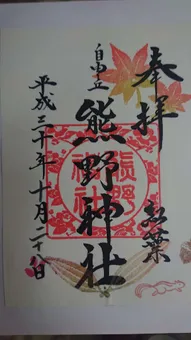 奉拝
紅葉
自由が丘
熊野神社
平成三十年十月二十八日